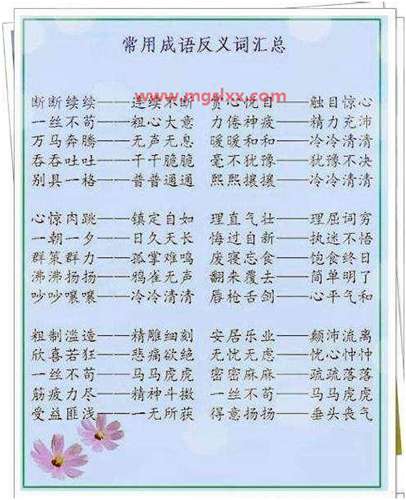 常用成语反义词汇总
www.mgslxx.com
断断续续——连续不断 赏心悦目——触目惊心
一丝不苟——粗心大意 力倦神疲——精力充沛
万马奔腾——无声无息 暖暖和和——冷冷清清
吞吞吐吐——干干脆脆 毫不犹豫——犹豫不决
别具一格——普普通通 熙熙攘攘——冷冷清清
心惊肉跳——镇定自如 理直气壮——理屈词穷
一朝一夕——日久天长 悔过自新——执迷不悟
群策群力——孤掌难鸣 废寝忘食——饱食终日
沸沸扬扬——鸦雀无声 翻来覆去——简单明了
吵吵嚷嚷——冷冷清清 唇枪舌剑——心平气和
粗制滥造——精雕细刻 安居乐业——颠沛流离
欣喜若狂——悲痛欲绝 无忧无虑——忧心忡忡
一丝不苟——马马虎虎 密密麻麻——疏疏落落
筋疲力尽——精神斗擞 一丝不苟——马马虎虎
受益匪浅——一无所获 得意扬扬——垂头丧气